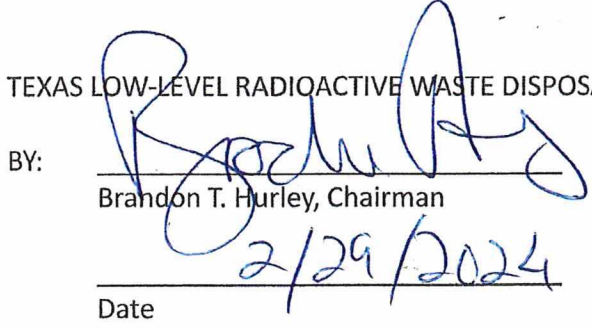 TEXAS LOW-LEVEL RADIOACTIVE WASTE DISPOSA
BY:
Brandon T. Hurley, Chairman
2/29/2024
Date